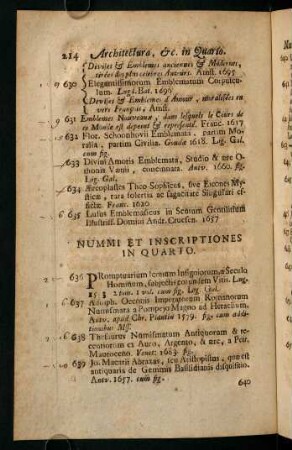 214 Architectura, &c. in Quarto.
(Devises & Emblemes anciennes & Modernes,
tirées des plus celebres Auteurs. Amst. 1695
630 (Elegantissimorum Emblematum Corpuscu-
lum. Lugd. Bat. 1696
(Devises & Emblemes d'Amour, moralisées en
vers François, Amst.
631 Emblemes Nouveaux, dans lesquels le Cours de
ce Monde est depeint & representé. Franc. 1617
632 Flor. Schoonhovii Emblemata, partim Mo-
ralia, partim Civilia. Goudæ 1618. Lig. Gal.
cum fig.
633 Divini Amoris Emblemata, Studio & ære O-
thonis Vænii, concinnata. Antv. 1660. fig.
Lig. Gal.
634 Areoplastes Theo-Sophicus, sive Eicones My-
sticæ, rara solertia ac sagacitate
Franc. 1620
635 Lusus Emblematicus in Scutum Gentilitium
Illustriss. Domini Andr. Cruesen. 1657
NUMMI ET INSCRIPTIONES
IN QUARTO.
636 PRomptuarium Iconum Insigniorum, a Seculo
Hominum, subjectis eorundem Vitis. Lugd.
1553 2 tom. 1 vol. cum fig. Lig. Gal.
6 637 Adolph. Occonis Imperatorum Romanorum
Numismata a Pompejo Magno ad Heraclium.
Antv. apud Chr. Plantin 1579. fig. cum addi-
tionibus Mss.
6 638 Thesaurus Numismatum Antiquorum & re-
centiorum ex Auro, Argento, & ære, a Petr.
Mauroceno. Venet. 1683. fig.
639 Jo. Macarii Abraxas, seu Apistopistus, quæ est
antiquaria de Gemmis Basilidianis disquisitio.
Antv. 1657. cum fig.
640